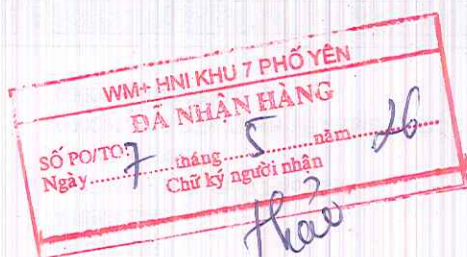 WM+ HNI KHU 7 PHỐ YÊN
ĐÃ NHẬN HÀNG
SỐ PO/TO:
Ngày 7 tháng 5 năm 26
Chữ ký người nhận
thảo